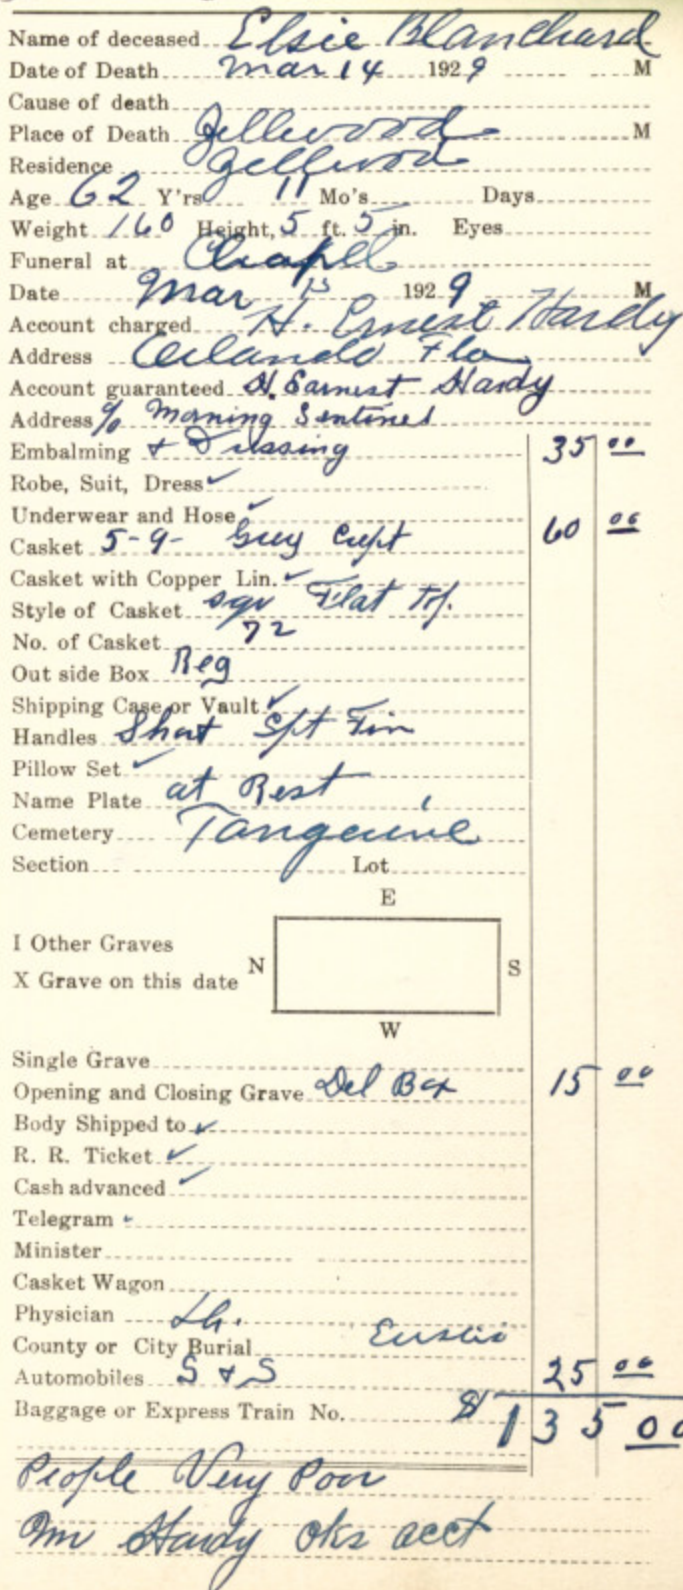 Name of deceased Elsie Blanchard
Date of Death Mar 14 1929 M
Cause of death
Place of Death Zellwood M
Residence Zellwood
Age 62 Y'rs 11 Mo's Days
Weight 160 Height, 5 ft. 5 in. Eyes
Funeral at Chapel
Date Mar 15 1929 M
Account charged H. Ernest Hardy
Address Orlando Fla
Account guaranteed H. Earnest Hardy
Address % Morning Sentinel
Embalming + Dressing 35 00
Robe, Suit, Dress ✓
Underwear and Hose ✓
Casket 5-9- Grey Crept 60 00
Casket with Copper Lin. ✓
Style of Casket sqr Flat Top.
No. of Casket 72
Out side Box Reg
Shipping Case or Vault ✓
Handles Short Fin
Pillow Set ✓
Name Plate at Rest
Cemetery Tangerine
Section Lot
E
I Other Graves
N S
X Grave on this date
W
Single Grave
Opening and Closing Grave Del Box 15 00
Body Shipped to ✓
R. R. Ticket ✓
Cash advanced ✓
Telegram
Minister
Casket Wagon
Physician
County or City Burial Eustis
Automobiles S & S 25 00
Baggage or Express Train No. $135 00
People Very Poor
Mr Hardy oks acct